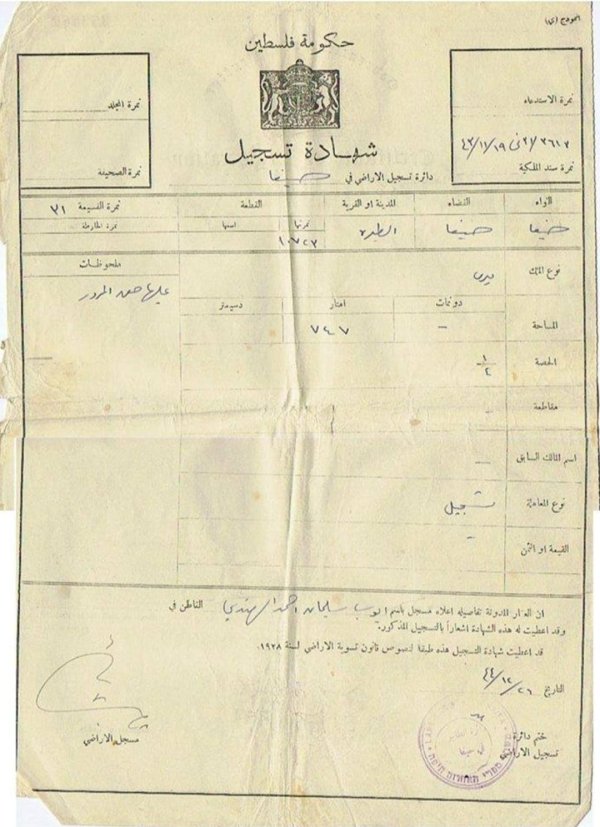 النموذج (ى)
حكومة فلسطين
نمرة المجلد
نمرة الصحيفة
نمرة الاستدعاء
نمرة سند الملكية
شهادة تسجيل
دائرة تسجيل الاراضي في حيفا
اللواء القضاء المدينة او القرية القطعة نمرة القسيمة ٣١
حيفا حيفا الطيره نمرتها اسمها نمرة الخارطة
١٠٧٢٣
نوع الملك ميرى
ملحوظات
عليها حق المرور
دونمات امتار دسيمتر
المساحة - ٧٤٧
الحصة ١/٢
مقاطعة -
اسم المالك السابق -
نوع المعاملة تسجيل
القيمة او الثمن -
ان العقار المدونة تفاصيله اعلاه مسجل باسم ايوب سليمان احمد الهندي القاطن في
وقد اعطيت له هذه الشهادة اشعاراً بالتسجيل المذكور.
قد اعطيت شهادة التسجيل هذه طبقا لنصوص قانون تسوية الاراضي لسنة ١٩٢٨.
التاريخ ٤٤/١٢/٢٦
مسجل الاراضي
ختم دائرة
تسجيل الاراضي
في حيفا